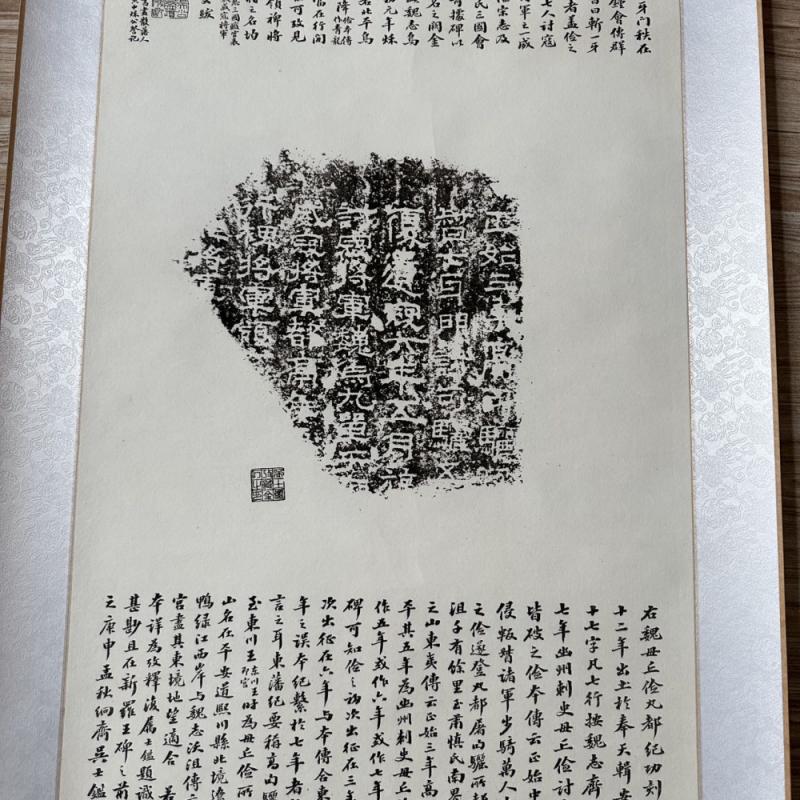 牙門秩在
鍾會傳群
曰斬一牙
者孟儉之
七人討寇
將軍之一威
宗志及
氏三國會
據碑以
名之闕金
魏志烏
元年殊
名北平烏
當在行間
可攷見
領裨將
之名均
正始三年高句驪
督七牙門討句驪五
復遣寇六年五月旋
討寇將軍魏烏丸單于
威寇將軍都亭侯
行裨將軍領
裨將軍
右魏毌丘儉丸都紀功刻
十二年出土於奉天輯安
十七字凡七行按魏志齊
七年幽州刺史毌丘儉討
皆破之儉本傳云正始中
侵叛督諸軍步騎萬人
之儉遂登丸都屠句驪所都
沮千有餘里至肅慎氏南界
之山東夷傳云正始三年高
平其五年為幽州刺史毌丘
作五年或作六年或作七年
碑可知儉之初次出征在三年
次出征在六年與本傳合東
年之誤本紀繫於七年者
言之耳東藩紀要稱高句驪
至東川王時為毌丘儉所
山名在平安道熙川縣北境
鴨綠江西岸與魏志沃沮傳
宮盡其東境地望適合 若
本詳為攷釋復屬士鑑題識
甚尠且在新羅王碑之前
之庚申孟秋絅齋吳士鑑